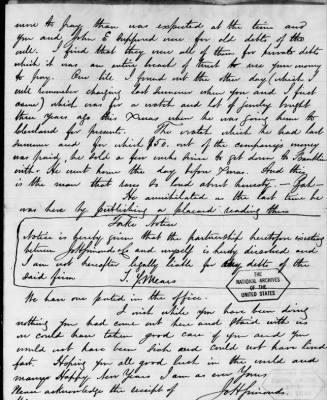 more to pay than was expected at the time and
you and John E supposed were for old debts of the
mill. I find that they were all of them for private debt
which it was an entire breach of trust to use your money
to pay. One bill I found out the other day (which I
will remember charging last summer when you and I first
came) which was for a watch and lot of jewelry bought
three years ago this Xmas when he was going home to
Cleveland for present. The watch which he had last
summer and for which $50. out of the company's money
was paid, he sold a few weeks since to get down to
with. He went home the day before Xmas. And this
is the man that raves so loud about honesty — Gah —
He annihilated us the last time he
was here by publishing a placard reading thus
Take Notice
Notice is hereby given that the partnership heretofore existing
between and myself is hereby dissolved and
I am not hereafter legally liable for any debts of the
said firm
We have one posted in the office.
I wish while you have been doing
nothing you had come out here and staid with us
we could have taken good care of you and you
would not have been sick and could not have lived
fast. Hoping you all good luck in the world and
many Happy New Years I am as ever Yours
acknowledge the receipt of
THE
NATIONAL ARCHIVES
OF THE
UNITED STATES